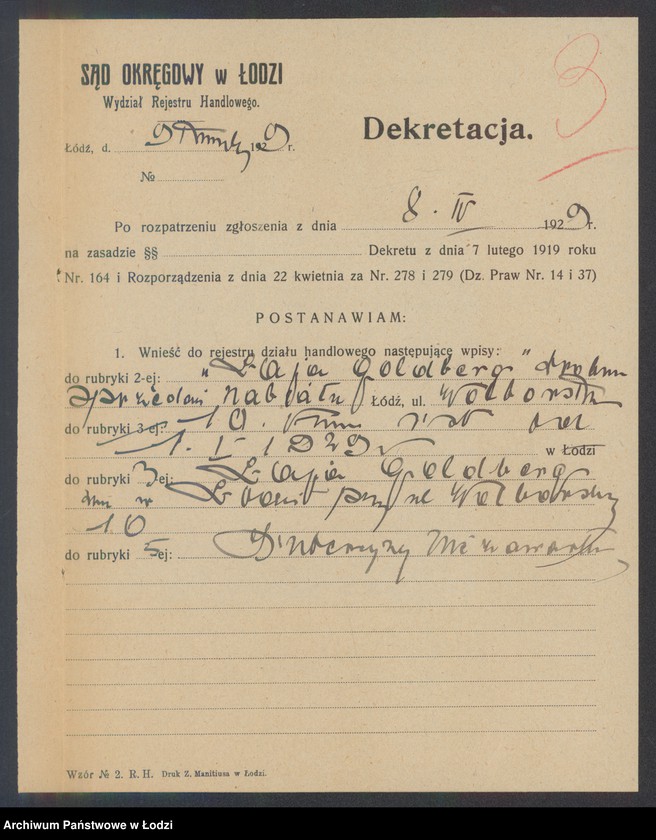 3
SĄD OKRĘGOWY w ŁODZI
Wydział Rejestru Handlowego.
Dekretacja.
Łódź, d. 9 1929 r.
№
Po rozpatrzeniu zgłoszenia z dnia 8. IV 1929 r.
na zasadzie §§ Dekretu z dnia 7 lutego 1919 roku
Nr. 164 i Rozporządzenia z dnia 22 kwietnia za Nr. 278 i 279 (Dz. Praw Nr. 14 i 37)
POSTANAWIAM:
1. Wnieść do rejestru działu handlowego następujące wpisy:
do rubryki 2-ej: "Łaja Goldberg"
sprzedaż nabiału Łódź, ul. Wolborska
do rubryki 3-ej: 10. Firma od
1. I 1929 r w Łodzi
do rubryki 3ej: Łaja Goldberg
zam w Łodzi przy ul Wolborskiej
10
do rubryki 5ej: Intercyzy nie zawarła
Wzór № 2. R. H. Druk Z. Manitiusa w Łodzi.
Archiwum Państwowe w Łodzi